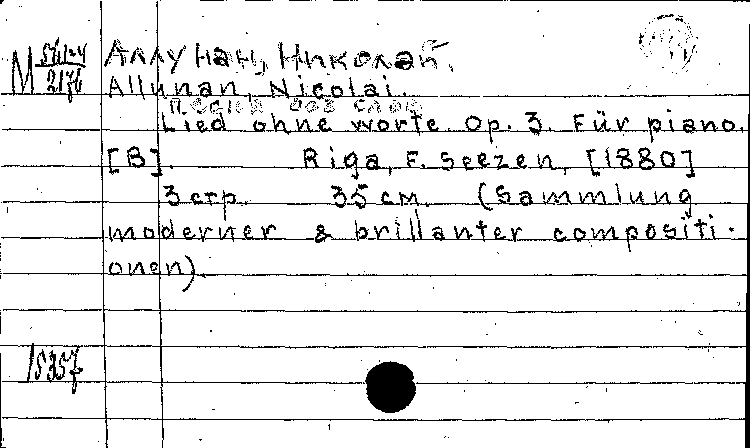 М 571-4
2176
Аллунан, Николай.
Allunan, Nicolai.
Песня без слов
Lied ohne worte. Op. 3. Für piano.
[B]. Riga, F. Seezen, [1880]
3 стр. 35 см. (Sammlung
moderner & brillanter compositi-
onen).
15357